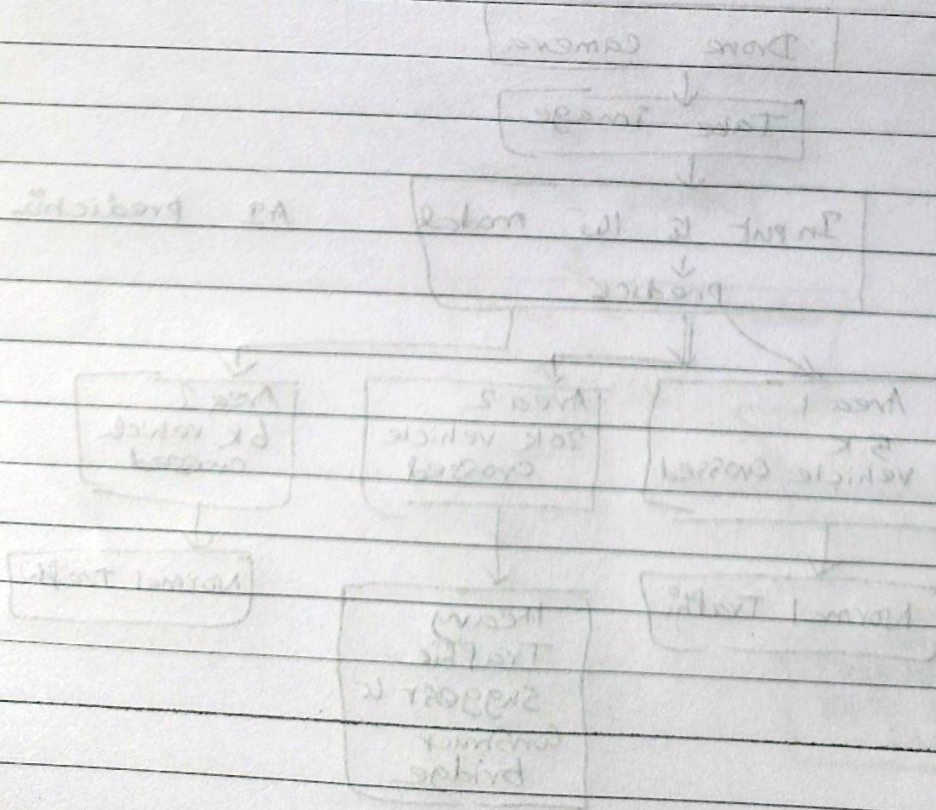 Drone Camera
Take Image
Input to the model
As Prediction
Predict
Area 1
5 K
vehicle crossed
Area 2
20K vehicle
crossed
Area
6K vehicle
crossed
Normal Traffic
Heavy
Traffic
Suggest to
Construct
bridge
Normal Traffic